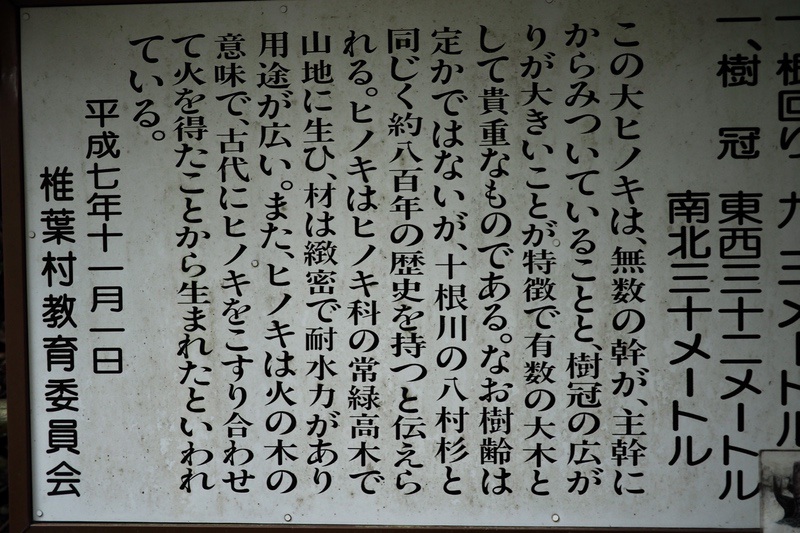 一 根回り 九・三メートル
一、樹 冠 東西三十二メートル
南北三十メートル
この大ヒノキは、無数の幹が、主幹に
からみついていることと、樹冠の広が
りが大きいことが特徴で有数の大木と
して貴重なものである。なお樹齢は
定かではないが、十根川の八村杉と
同じく約八百年の歴史を持つと伝えら
れる。ヒノキはヒノキ科の常緑高木で
山地に生ひ、材は緻密で耐水力があり
用途が広い。また、ヒノキは火の木の
意味で、古代にヒノキをこすり合わせ
て火を得たことから生まれたといわれ
ている。
平成七年十一月一日
椎葉村教育委員会